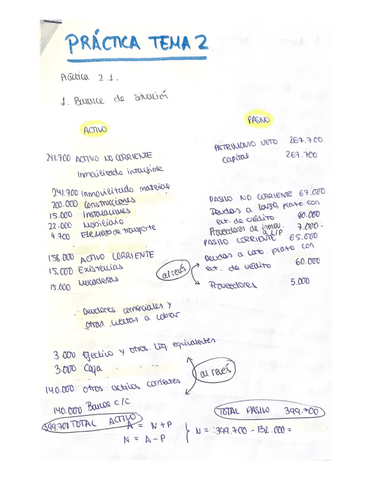 PRÁCTICA TEMA 2
Práctica 2.1.
1. Balance de situación
ACTIVO
241.700 ACTIVO NO CORRIENTE
Inmovilizado intangible
241.700 Inmovilizado material
200.000 Construcciones
15.000 Instalaciones
22.000 Mobiliario
4.700 Elementos de transporte
158.000 ACTIVO CORRIENTE
15.000 Existencias
15.000 Mercaderías
al revés
Deudores comerciales y
otras cuentas a cobrar
3.000 Efectivo y otros liq equivalentes
3.000 Caja
al revés
140.000 otros activos corrientes
140.000 Bancos c/c
399.700 TOTAL ACTIVO
PASIVO
PATRIMONIO NETO 267.700
Capital 267.700
PASIVO NO CORRIENTE 67.000
Deudas a largo plazo con
ent. de crédito 60.000
Proveedores de inmov. 7.000
a L/P
PASIVO CORRIENTE 65.000
Deudas a corto plazo con
ent. de crédito 60.000
Proveedores 5.000
TOTAL PASIVO 399.700
A = N + P
N = A - P
N = 399.700 - 132.000 =